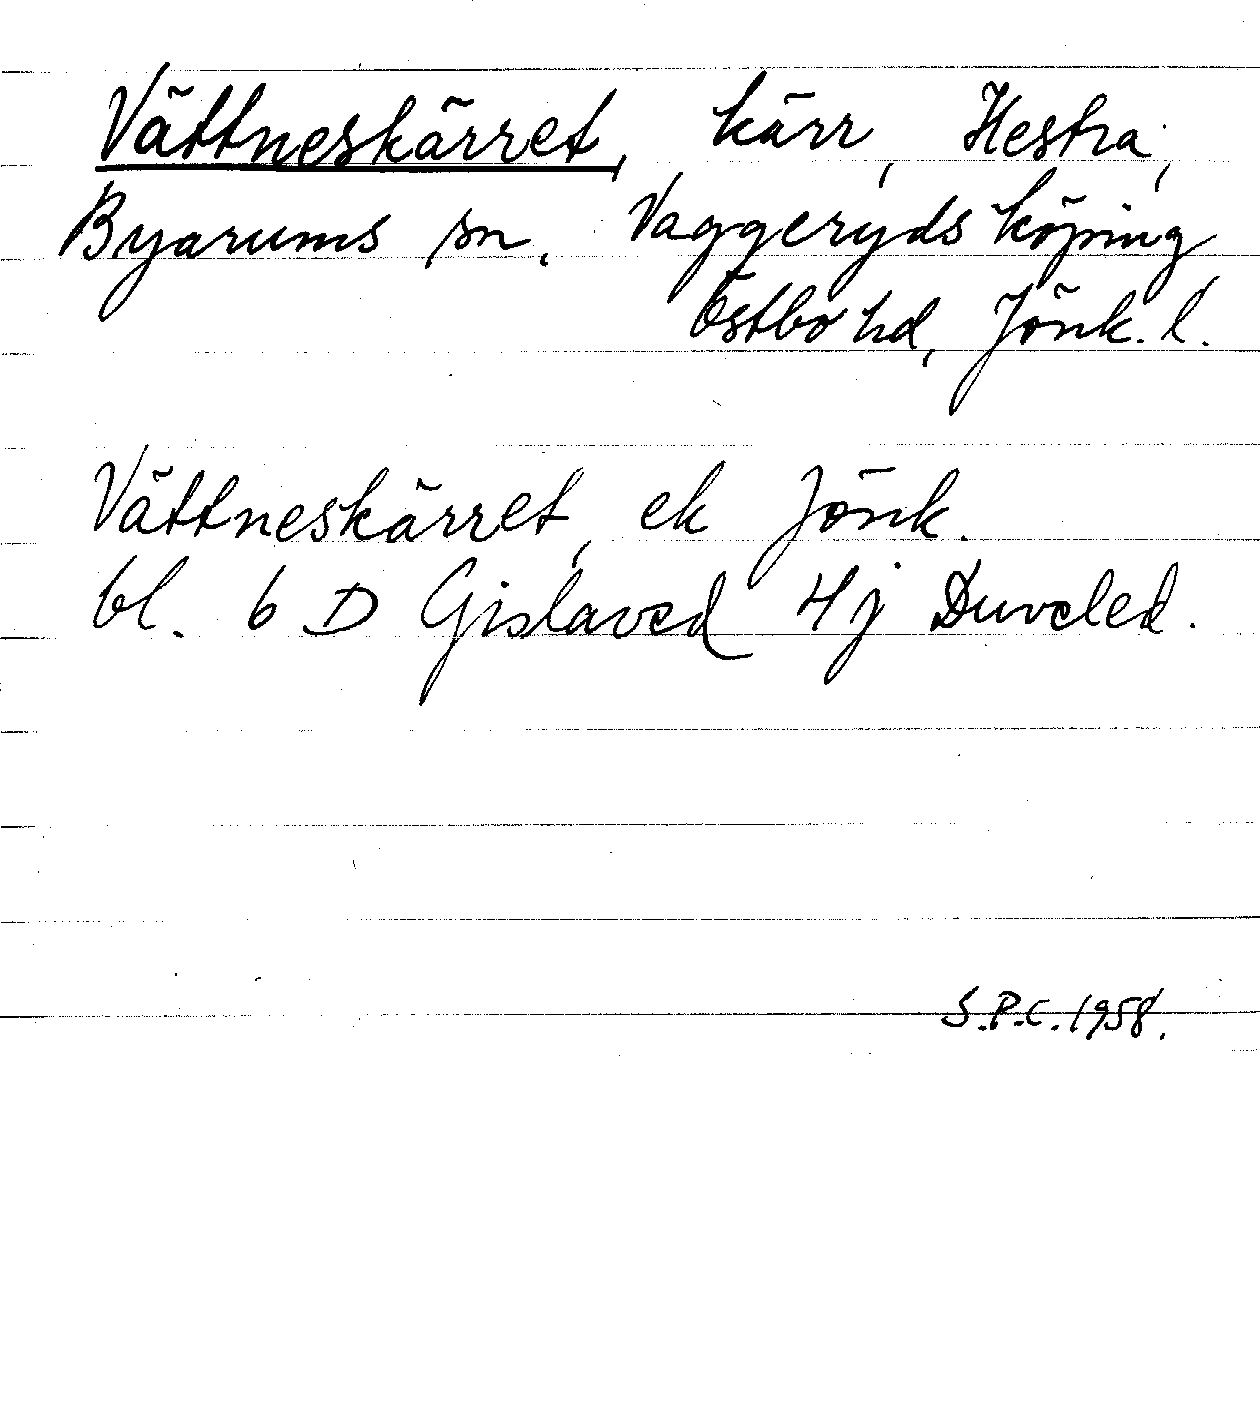 Vättneskärret, kärr, Hestra,
Byarums sn. Vaggeryds köping
Östbo hd, Jönk. l.
Vättneskärret, ek Jönk.
bl. 6 D Gislaved 4j Duveled.
S.P.C. 1958.